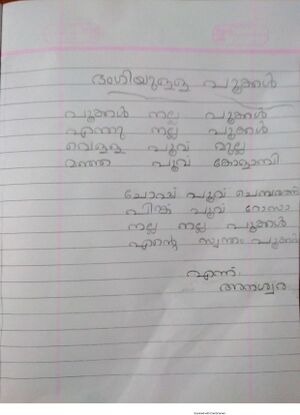 ഭംഗിയുള്ള പൂക്കൾ
പൂക്കൾ നല്ല പൂക്കൾ
എന്തു നല്ല പൂക്കൾ
വെള്ള പൂവ് മുല്ല
മഞ്ഞ പൂവ് കോളാമ്പി
പൂവ് ചെമ്പരത്തി
പിങ്ക് പൂവ് റോസാ
നല്ല നല്ല പൂക്കൾ
എന്റെ സ്വന്തം പൂക്കൾ
എന്ന്
അനശ്വര